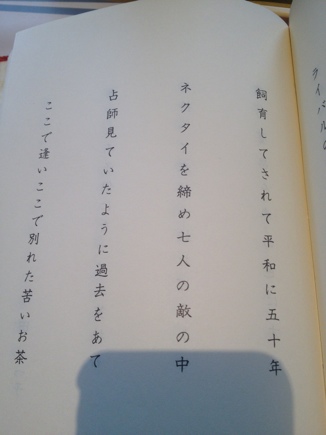 飼育してされて平和に五十年
ネクタイを締め七人の敵の中
占師見ていたように過去をあて
ここで逢いここで別れた苦いお茶